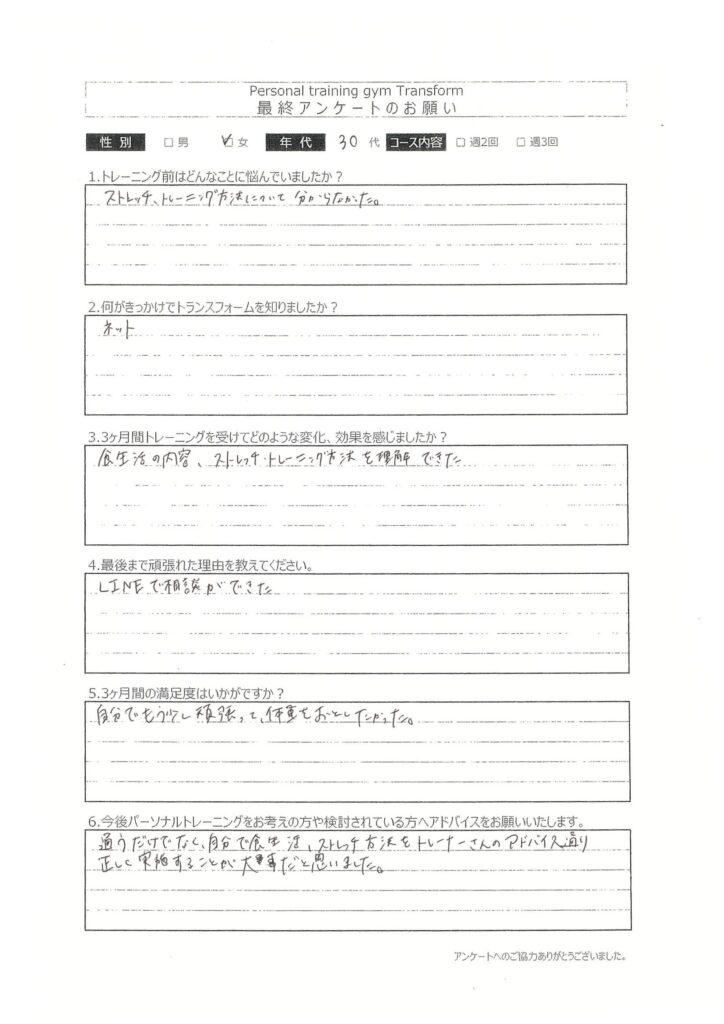 Personal training gym Transform
最終アンケートのお願い
性別 □男 ☑女 年代 30代 コース内容 □週2回 □週3回
1.トレーニング前はどんなことに悩んでいましたか？
ストレッチ、トレーニング方法について分からなかった。
2.何がきっかけでトランスフォームを知りましたか？
ネット
3.3ヶ月間トレーニングを受けてどのような変化、効果を感じましたか？
食生活の内容、ストレッチ・トレーニング方法を理解できた
4.最後まで頑張れた理由を教えてください。
LINEで相談ができた
5.3ヶ月間の満足度はいかがですか？
自分でもう少し頑張って、体重をおとしたかった。
6.今後パーソナルトレーニングをお考えの方や検討されている方へアドバイスをお願いいたします。
通うだけでなく、自分で食生活、ストレッチ方法をトレーナーさんのアドバイス通り
正しく実施することが大事だと思いました。
アンケートへのご協力ありがとうございました。